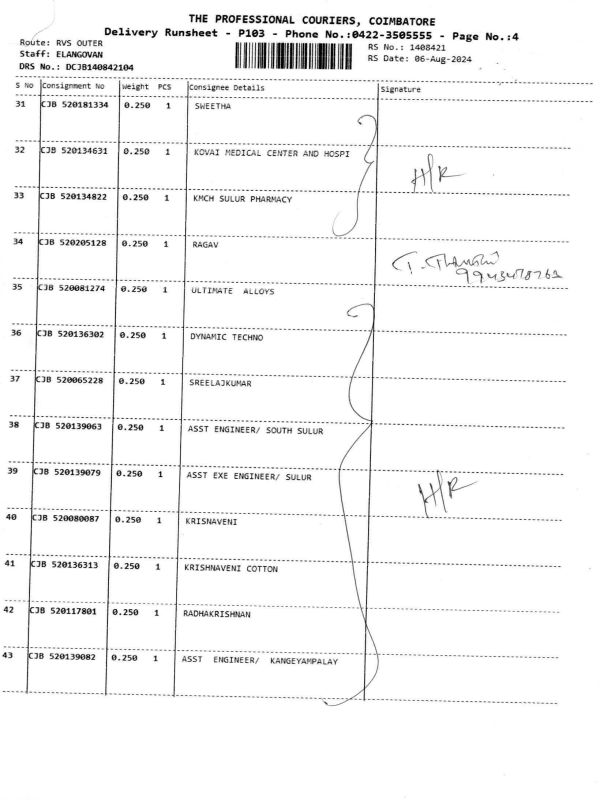 THE PROFESSIONAL COURIERS, COIMBATORE
Delivery Runsheet - P103 - Phone No.:0422-3505555 - Page No.:4
Route: RVS OUTER
Staff: ELANGOVAN
DRS No.: DCJB140842104
RS No.: 1408421
RS Date: 06-Aug-2024
S No Consignment No Weight PCS Consignee Details Signature
31 CJB 520181334 0.250 1 SWEETHA
32 CJB 520134631 0.250 1 KOVAI MEDICAL CENTER AND HOSPI
H/R
33 CJB 520134822 0.250 1 KMCH SULUR PHARMACY
34 CJB 520205128 0.250 1 RAGAV
35 CJB 520081274 0.250 1 ULTIMATE ALLOYS
36 CJB 520136302 0.250 1 DYNAMIC TECHNO
37 CJB 520065228 0.250 1 SREELAJKUMAR
38 CJB 520139063 0.250 1 ASST ENGINEER/ SOUTH SULUR
39 CJB 520139079 0.250 1 ASST EXE ENGINEER/ SULUR
H/R
40 CJB 520080087 0.250 1 KRISNAVENI
41 CJB 520136313 0.250 1 KRISHNAVENI COTTON
42 CJB 520117801 0.250 1 RADHAKRISHNAN
43 CJB 520139082 0.250 1 ASST ENGINEER/ KANGEYAMPALAY